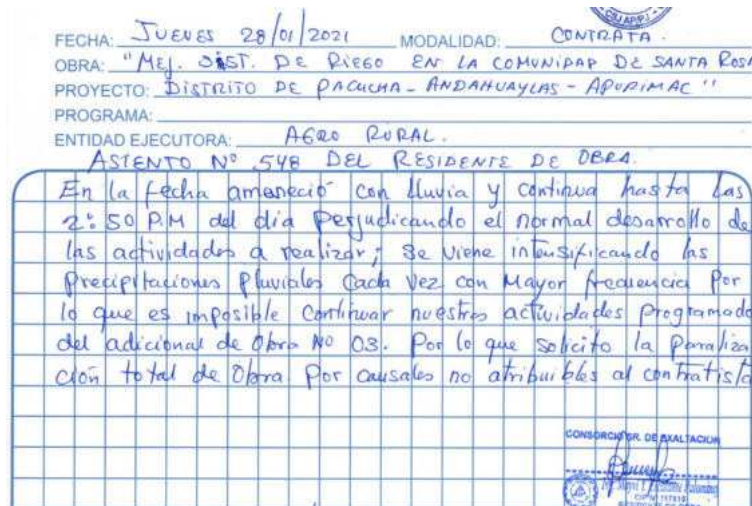 FECHA: JUEVES 28/01/2021 MODALIDAD: CONTRATA.
OBRA: "MEJ. SIST. DE RIEGO EN LA COMUNIDAD DE SANTA ROSA
PROYECTO: DISTRITO DE PACUCHA - ANDAHUAYLAS - APURIMAC"
PROGRAMA:
ENTIDAD EJECUTORA: AGRO RURAL.
ASIENTO Nº 548 DEL RESIDENTE DE OBRA.
En la fecha amaneció con lluvia y continua hasta las
2:50 P.M del dia perjudicando el normal desarrollo de
las actividades a realizar; se viene intensificando las
Precipitaciones Pluviales Cada vez con Mayor frecuencia Por
lo que es imposible Continuar nuestras actividades programada
del adicional de Obra Nº 03. Por lo que solicito la Paraliza
ción total de Obra Por causales no atribuibles al contratista
CONSORCIO SR. DE EXALTACION
RESIDENTE DE OBRA